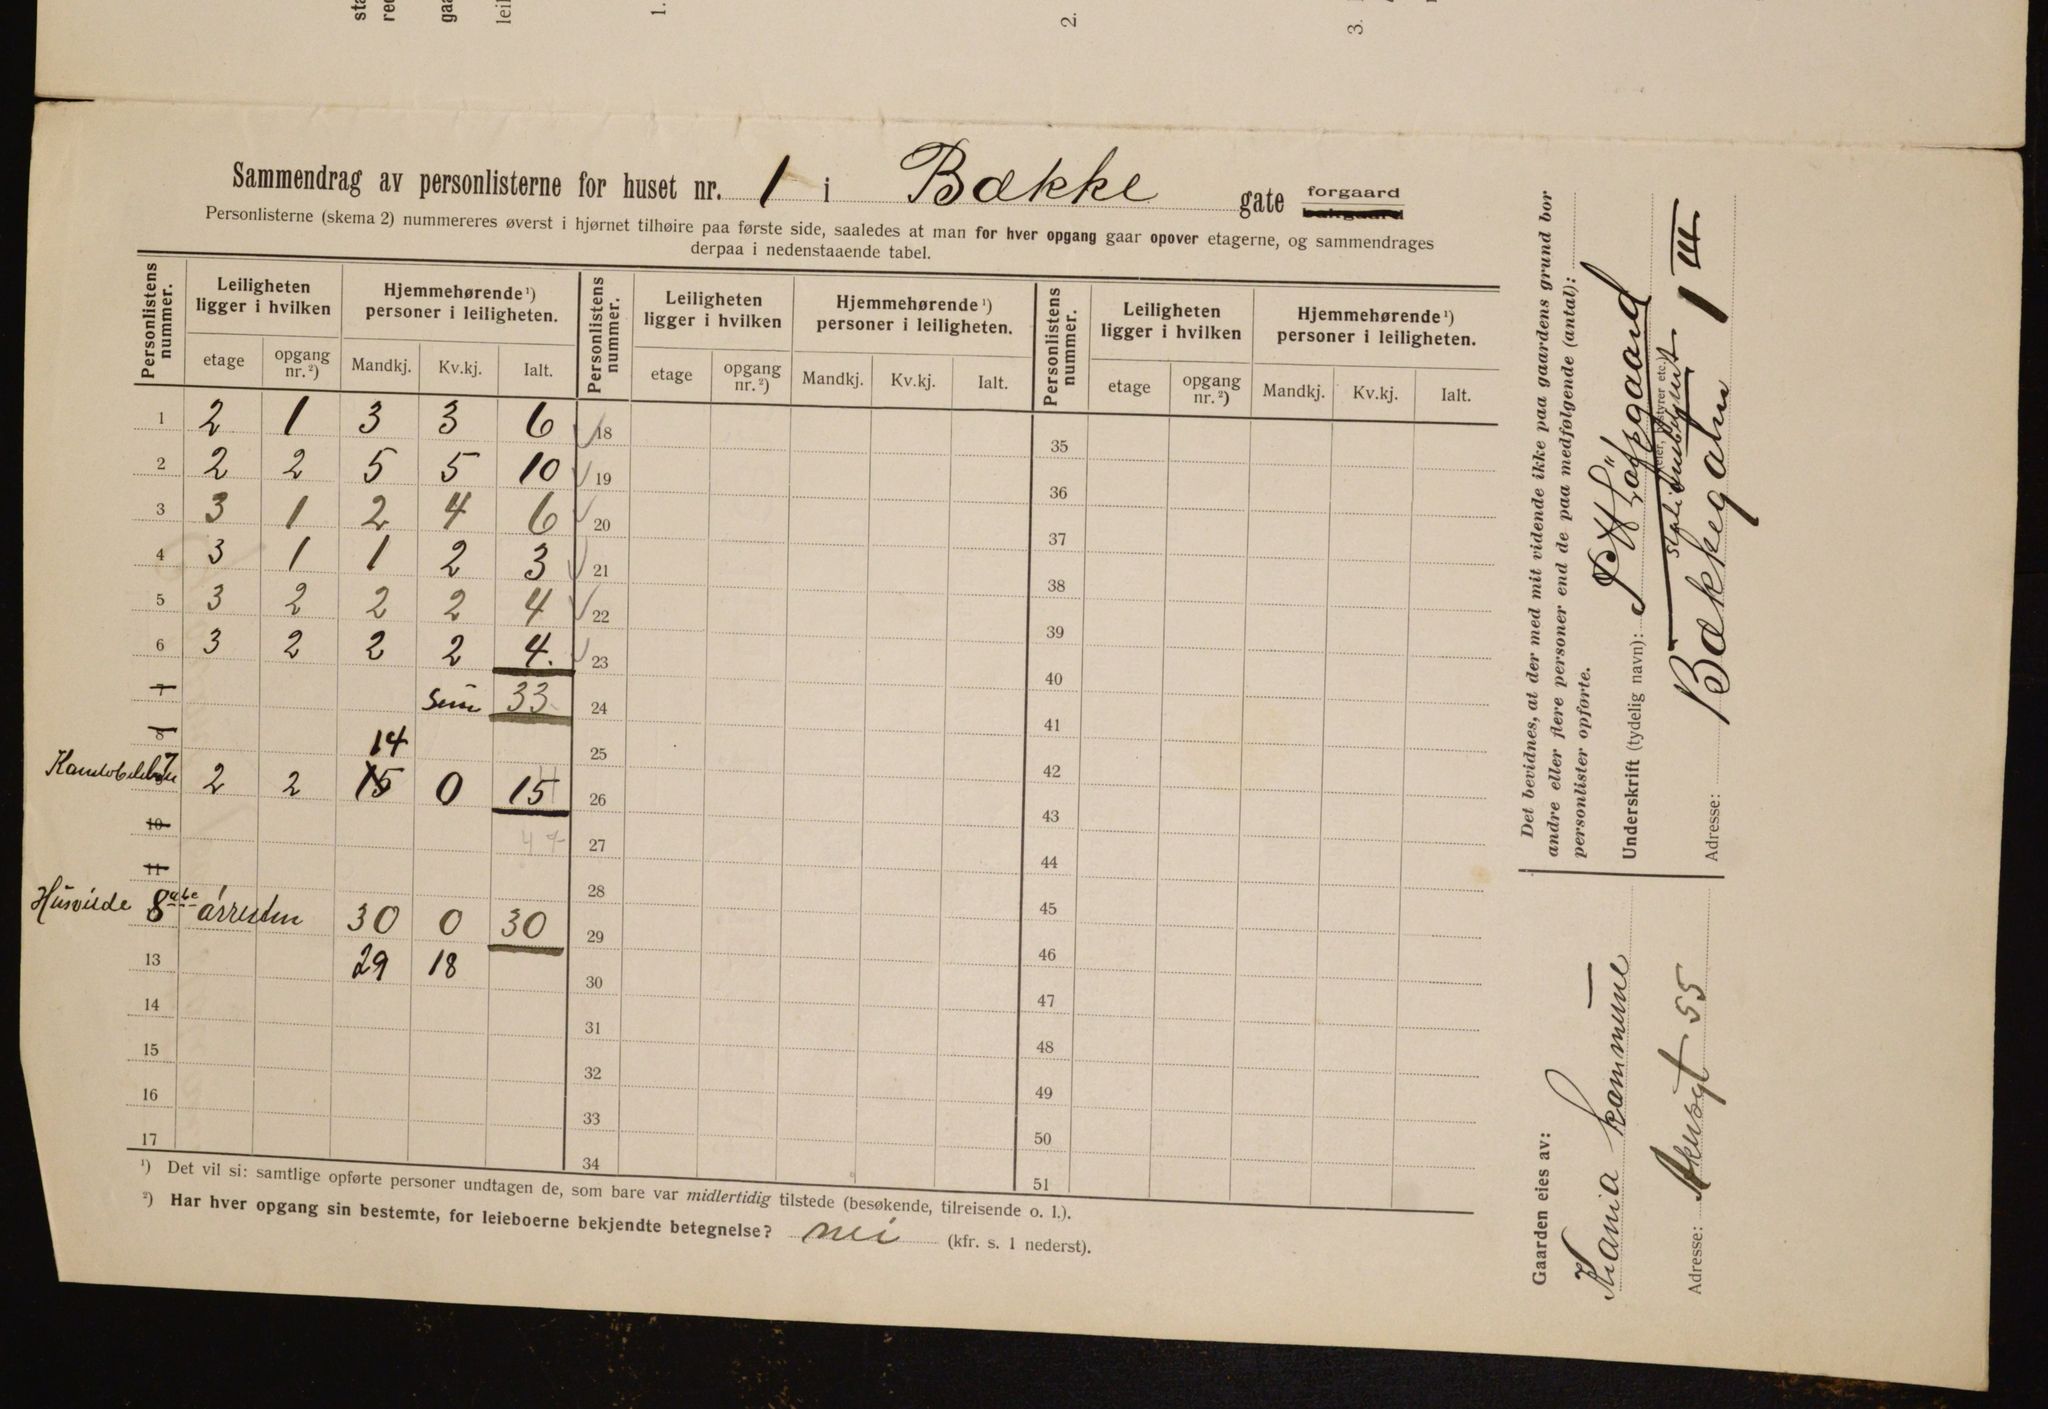 sta
rec
gaa
leil
1.
2.
3.
Sammendrag av personlisterne for huset nr. 1 i Bække gate forgaard
bakgaard
Personlisterne (skema 2) nummereres øverst i hjørnet tilhøire paa første side, saaledes at man for hver opgang gaar opover etagerne, og sammendrages
derpaa i nedenstaaende tabel.
Personlistens nummer. Leiligheten ligger i hvilken Hjemmehørende ¹) personer i leiligheten. Personlistens nummer. Leiligheten ligger i hvilken Hjemmehørende ¹) personer i leiligheten. Personlistens nummer. Leiligheten ligger i hvilken Hjemmehørende ¹) personer i leiligheten.
etage opgang nr. ²) Mandkj. Kv.kj. Ialt. etage opgang nr. ²) Mandkj. Kv.kj. Ialt. etage opgang nr. ²) Mandkj. Kv.kj. Ialt.
1 2 1 3 3 6 18 35
2 2 2 5 5 10 19 36
3 3 1 2 4 6 20 37
4 3 1 1 2 3 21 38
5 3 2 2 2 4 22 39
6 3 2 2 2 4. 23 40
7 Sum 33 24 41
8 14 25 42
7 2 2 15 0 15 26 43
10 47 27 44
11 28 45
Husvilde 8 arresten 30 0 30 29 46
13 29 18 30 47
14 31 48
15 32 49
16 33 50
17 34 51
¹) Det vil si: samtlige opførte personer undtagen de, som bare var midlertidig tilstede (besøkende, tilreisende o. l.).
²) Har hver opgang sin bestemte, for leieboerne bekjendte betegnelse? nei (kfr. s. 1 nederst).
Det bevidnes, at der med mit vidende ikke paa gaardens grund bor
andre eller flere personer end de paa medfølgende (antal):
personlister opførte.
Underskrift (tydelig navn):
(eier, bestyrer etc.)
Adresse: Bækkegaten 1 III
Gaarden eies av:
Kania kommune
Adresse: Akersgt 55